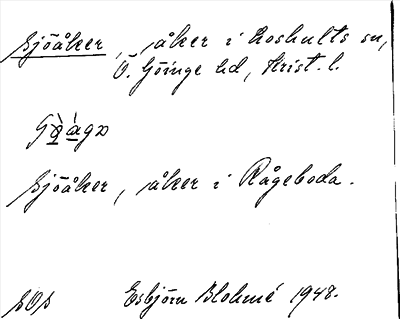 Sjöåker, åker i Loshults sn,
Ö. Göinge hd, Krist. l.
Sjöåker, åker i Rågeboda.
SOS Esbjörn Blohmé 1948.